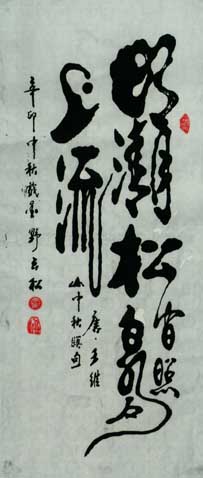 明月松间照
清泉石上流
唐·王维
山中秋暝句
辛卯中秋戏墨野松